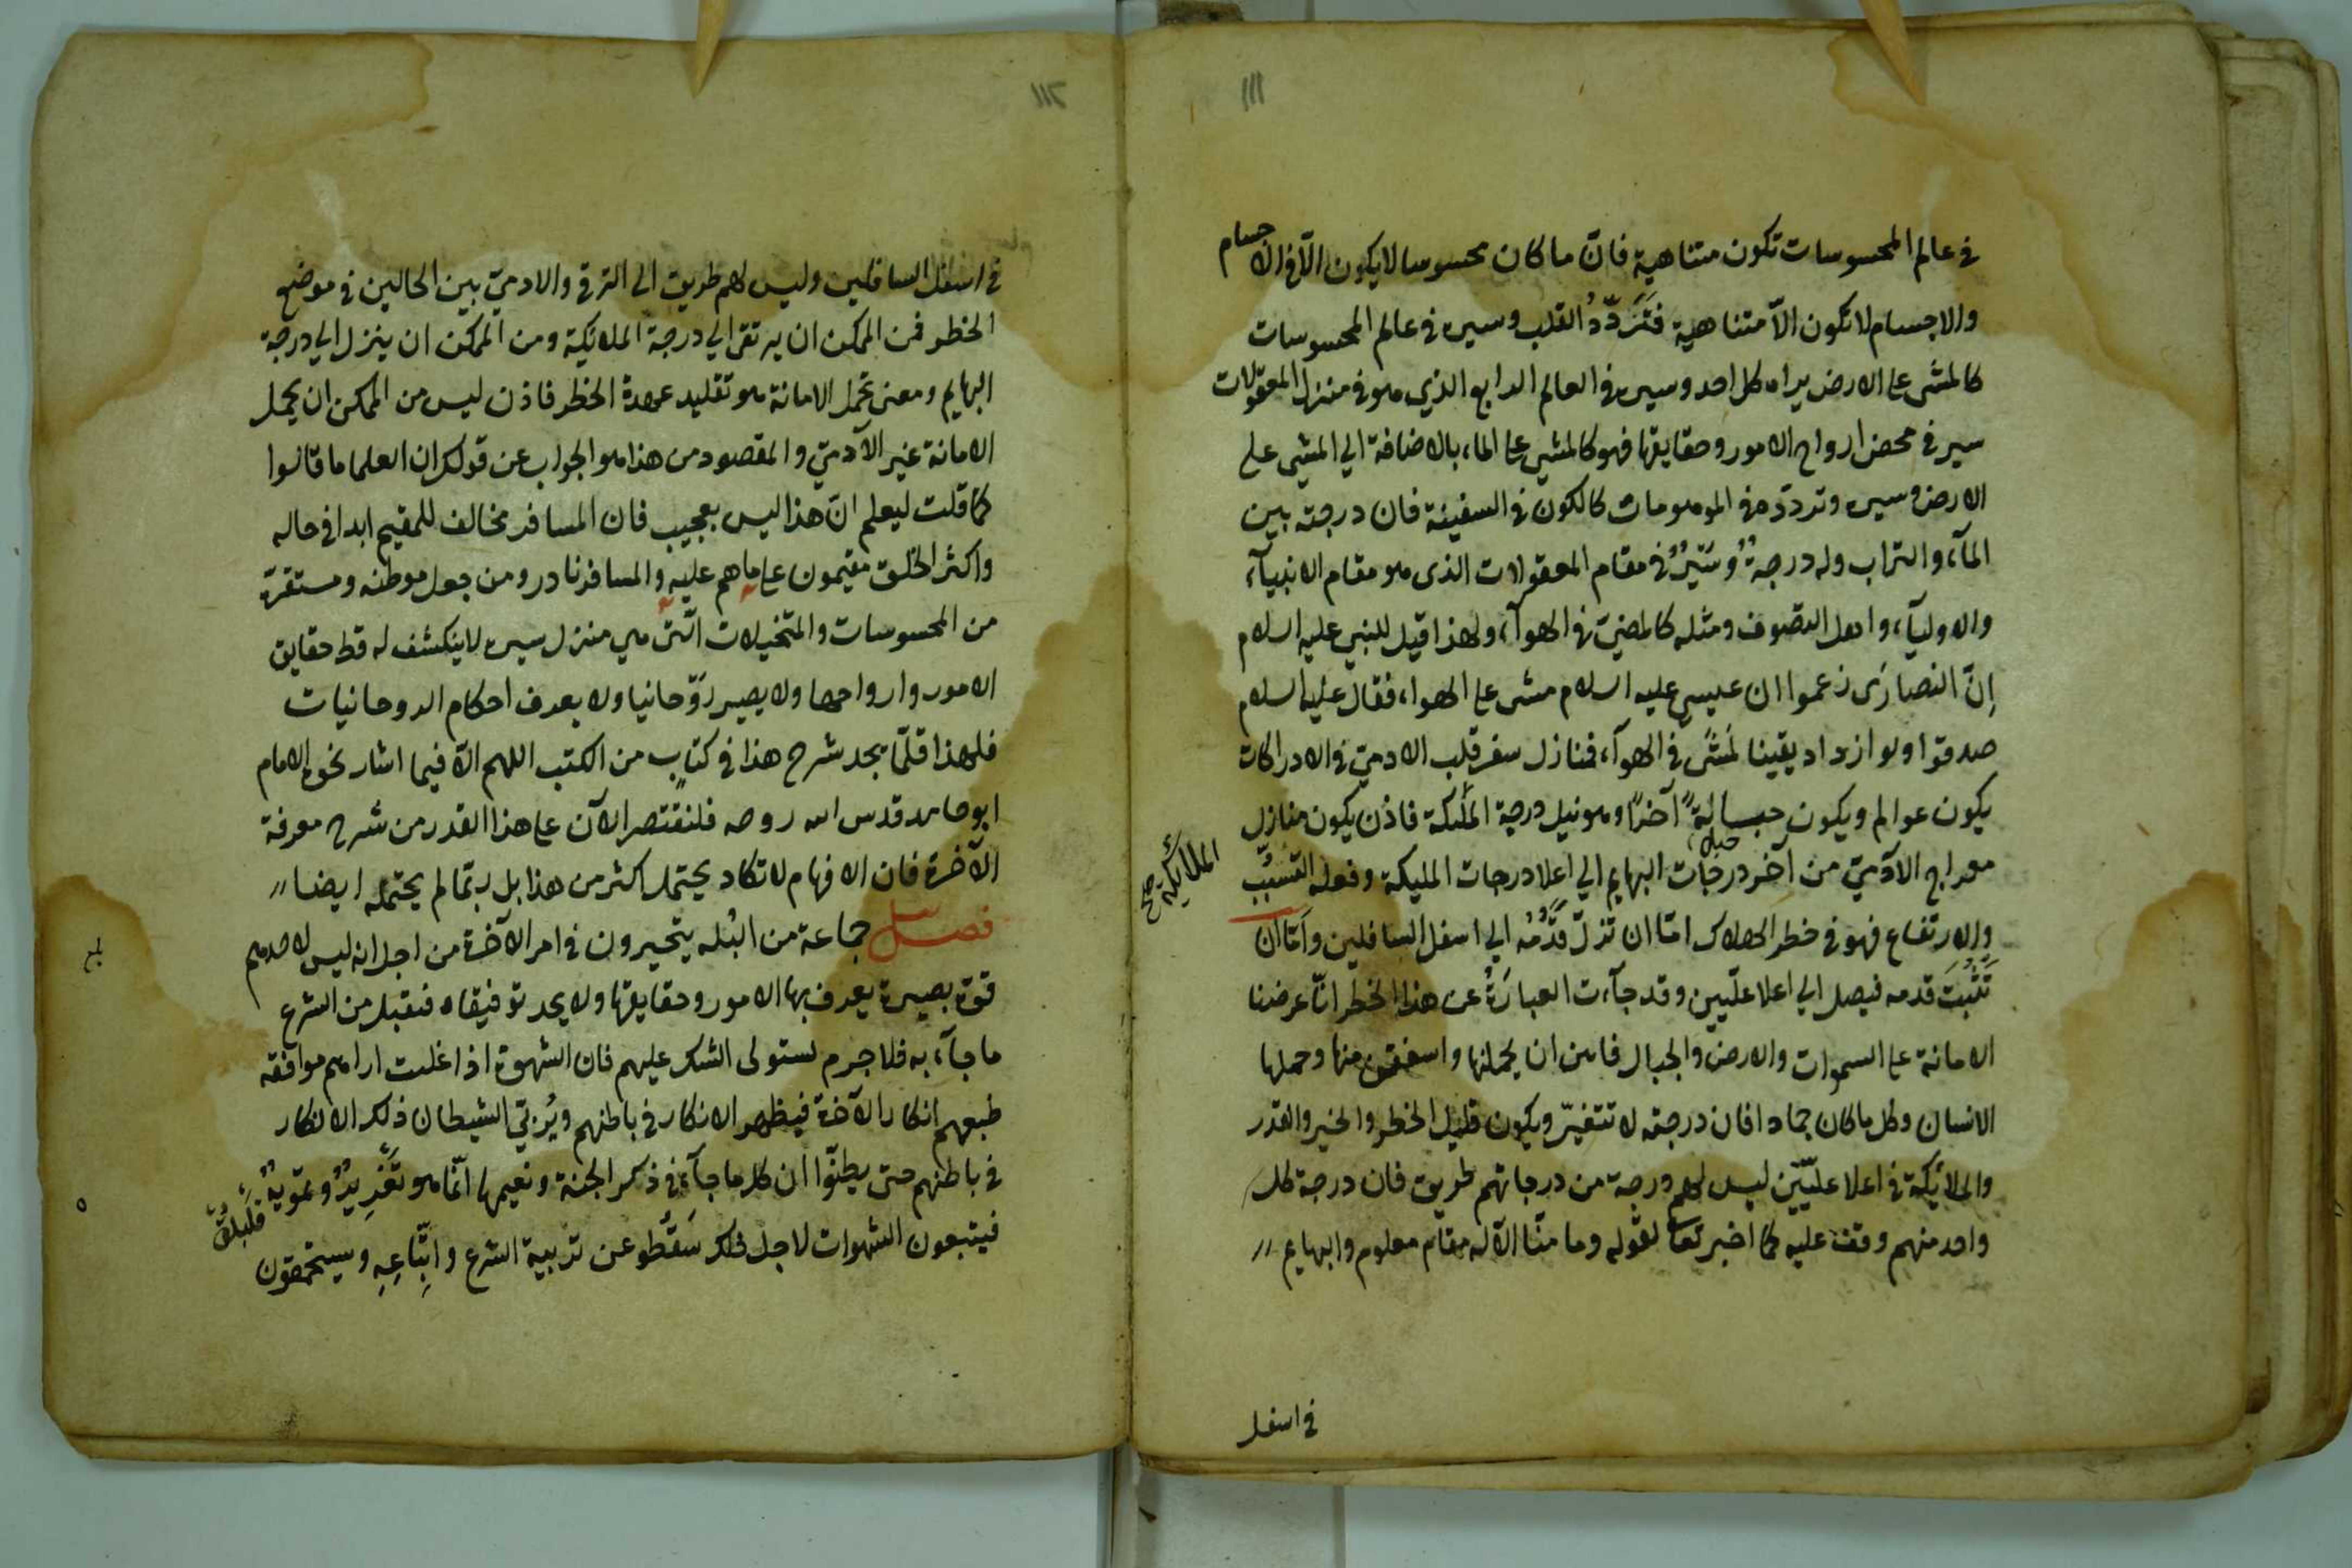 ١١١
في عالم المحسوسات تكون متناهية فانّ ما كان محسوسا لا يكون الّا في الاجسام
والاجسام لا تكون الاّ متناهية فتَردّدُ القلب وسيره في عالم المحسوسات
كالمشى على الارض يراه كل احد وسيره في العالم الرابع الذي هو في منزل المعقولات
سير في محض ارواح الامور وحقايقها فهو كالمشي على الماء بالاضافة الي المشي علي
الارض وسيره وتردّده في الموهومات كالكون في السفينة فان درجته بين
المآء والتراب وله درجةٌ وسَيرٌ في مقام المعقولات الذى هو مقام الانبيآء
والاوليآء واهل التصوف ومثله كالمضيّ في الهوآء ولهذا قيل للنبي عليه السلام
إنّ النصارَى زعموا ان عيسي عليه السلام مشى على الهواء فقال عليه السلام
صدقوا ولو ازداد يقينا لمَشَى في الهوآء فمنازل سفر قلب الادميّ في الادراكات
يكون عوالم ويكون آخرًا وهو نيل درجة الملئكة فاذن يكون منازل
معراج الآدميّ من آخر درجات البهايم الي اعلا درجات المليكة وفعله التسبّب
الملائكية صح
والارتفاع فهو في خطر الهلاك امّا ان تزلّ قدَمُه الي اسفل السافلين وامّا ان
تَثْبُتَ قدمه فيصل الي اعلا علّيين وقد جآءت العبارَةُ عن هذا الخطر انّا عرضنا
الامانة على السموات والارض والجبال فابين ان يحملنها واشفقن منها وحملها
الانسان وكل ما كان جمادا فان درجته لا تتغيّر ويكون قليل الخطر والخير والقدر
والملائكة في اعلا علّيّين ليس لهم درجة من درجاتهم طريق فان درجة كل
واحد منهم وقفت عليه كما اخبر تعالى لقوله وما منّا الّا له مقام معلوم والبهايم
في اسفل
١١٢
في اسفل السافلين وليس لهم طريق الى الترقي والادميّ بين الحالين في موضع
الخطر فمن الممكن ان يرتقي الي درجة الملائكية ومن الممكن ان ينزل الي درجة
البهايم ومعنى تحمل الامانة هو تقليد عهدة الخطر فاذن ليس من الممكن ان يحمل
الامانة غير الآدميّ والمقصود من هذا هو الجواب عن قولك ان العلما ما قالوا
كما قلت ليعلم انّ هذا ليس بعجيب فان المسافر مخالف للمقيم ابدا في حاله
واكثر الخلق مقيمون على ما هم عليه والمسافر نادر ومن جعل موطنه ومستقرّه
من المحسوسات والمتخيلات الّتى هي منزل سيره لا ينكشف له قط حقايق
الامور وارواحها ولا يصير روّحانيا ولا يعرف احكام الروحانيات
فلهذا قلّما يجد شرح هذا في كتاب من الكتب اللهم الّا فيما اشار نحوه الامام
ابو حامد قدس الله روحه فلنقتصر الآن على هذا القدر من شرح معرفة
الآخرة فان الافهام لا تكاد يحتمل اكثر من هذا بل ربّما لم يحتمله ايضا
فصل جماعة من البُله يتحيرون في امر الآخرة من اجل انه ليس لاحدهم
قوة بصيرة يعرف بها الامور وحقايقها ولا يجد توفيقاه فيقبل من الشرع
ما جآء به فلا جرم يستولى الشك عليهم فان الشهوة اذا غلبت اراهم موافقه
طبعهم انكار الآخرة فيظهر الانكار في باطنهم ويُربّي الشيطان ذلك الانكار
في باطنهم حتى يظنّوا ان كل ما جآء في ذكر الجنة ونعيمها انّما هو وتمويهٌ
فيتبعون الشهوات لاجل ذلك سَقطو عن تربية الشرع واتّباعِهِ ويستحمقون